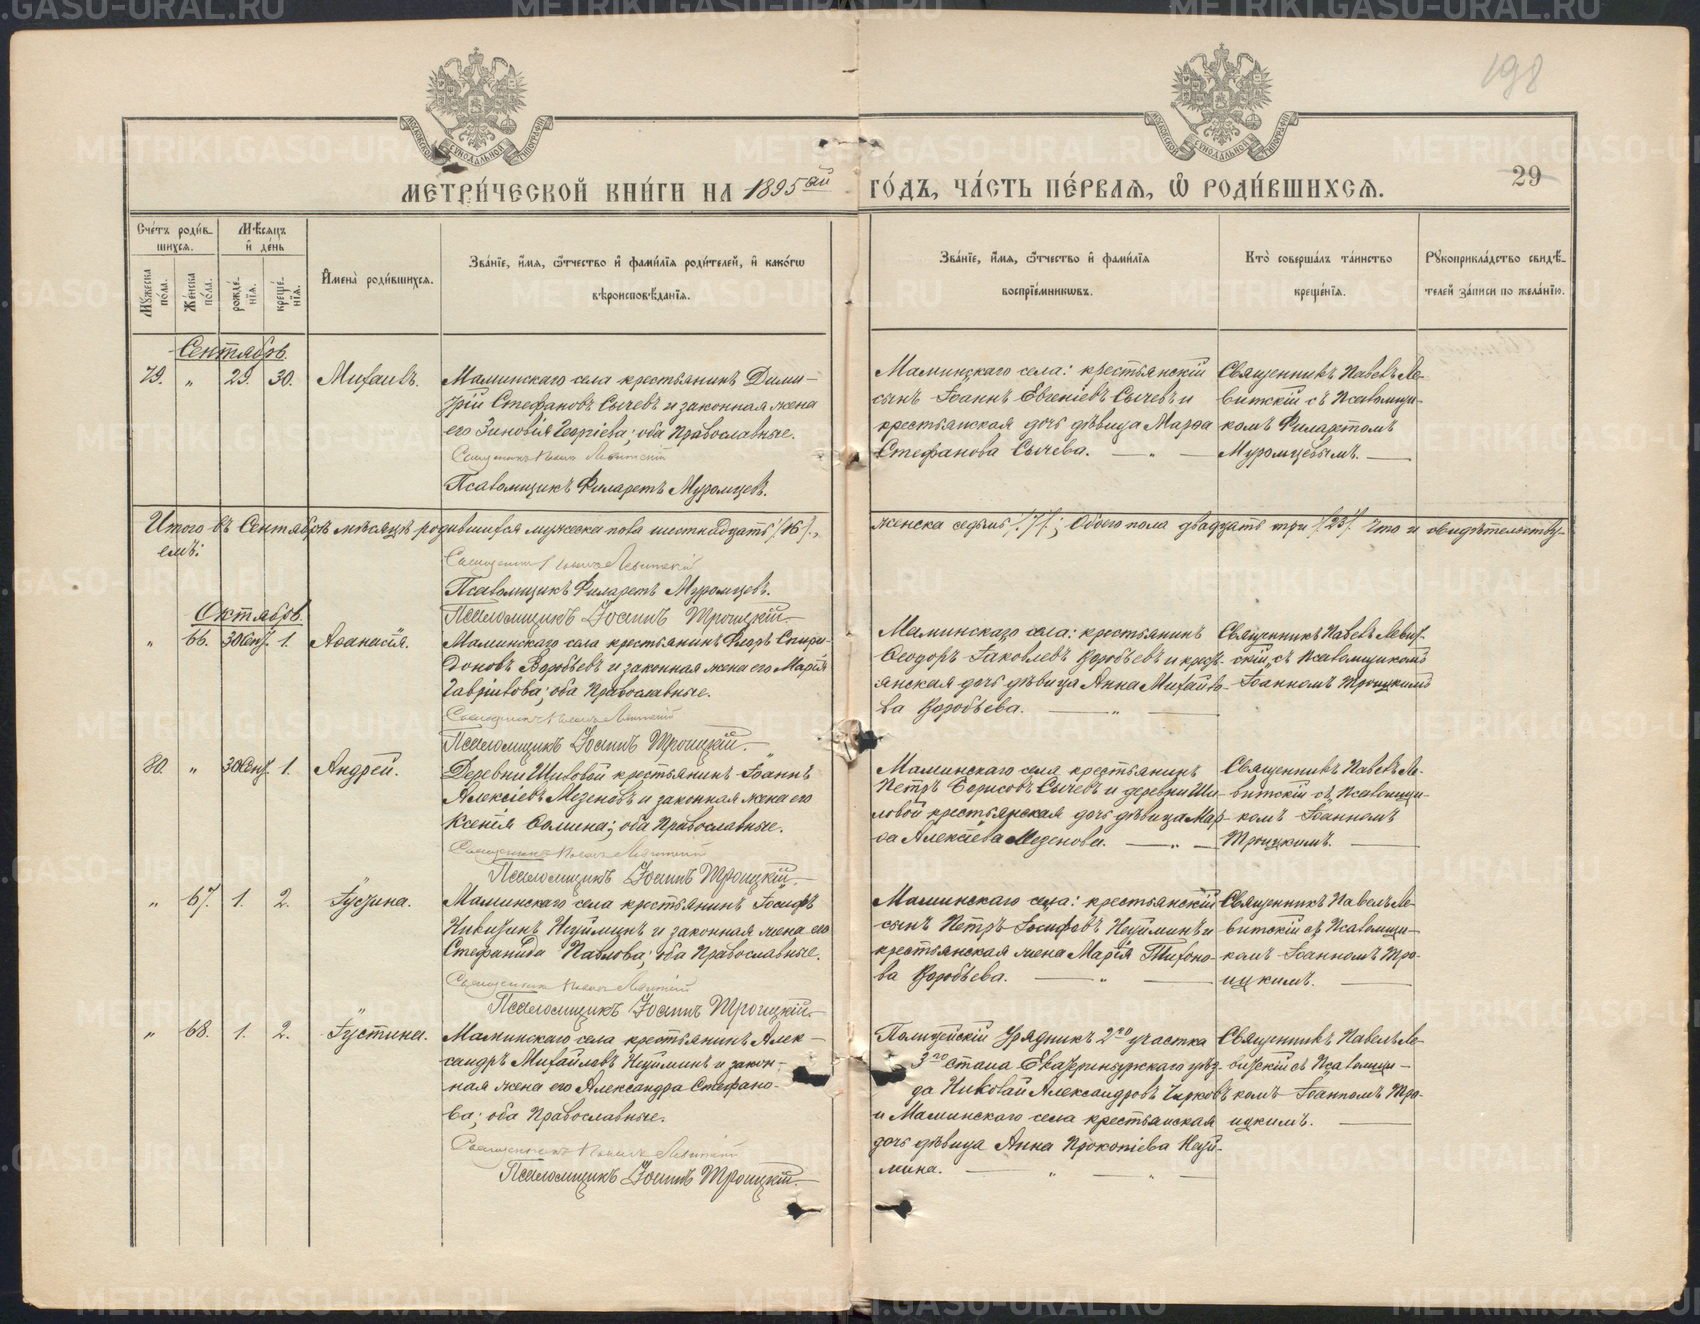 198
МОСКОВСКОЙ СѴНОДАЛЬНОЙ ТИПОГРАФІИ
МОСКОВСКОЙ СѴНОДАЛЬНОЙ ТИПОГРАФІИ
МЕТРИ́ЧЕСКОЙ КНИ́ГИ НА 1895ый ГО́ДЪ, ЧА́СТЬ ПЕ́РВАЯ, Ѽ РОДИ́ВШИХСЯ.
29
Сче́тъ роди́в-
шихся.
Мѣ́сяцъ
и҆ де́нь
Мꙋ́жеска по́ла.
Же́нска по́ла.
рожде́нїя.
креще́нїя.
И҆мена̀ роди́вшихся.
Зва́нїе, и҆́мя, ѻ҆́тчество и҆ фами́лїя роди́телей, и҆ како́гѡ
вѣроисповѣ́данїя.
Зва́нїе, и҆́мя, ѻ҆́тчество и҆ фами́лїя
воспрїе́мникѡвъ.
Кто̀ соверша́лъ та́инство
креще́нїя.
Рꙋкоприкла́дство свидѣ́-
телей за́писи по жела́нїю.
Сентябрь.
79. „ 29. 30. Михаилъ.
Маминскаго села крестьянинъ Дими-
трій Стефановъ Сычевъ и законная жена
его Зиновія Георгіева; оба Православные.
Священникъ Павелъ Левитскій
Псаломщикъ Филаретъ Муромцевъ.
Маминскаго села: крестьянскій
сынъ Іоаннъ Евгеніевъ Сычевъ и
крестьянская дочь дѣвица Марфа
Стефанова Сычева. — „ —
Священникъ Павелъ Ле-
витскій съ Псаломщи-
комъ Филаретомъ
Муромцевымъ. —
Итого въ Сентябрѣ мѣсяцѣ родившихся мужеска пола шестнадцать /16/, женска седмь /7/; Обоего пола двадцать три /23/. Что и свидѣтельству-
емъ:
Священникъ Павелъ Левитскій
Псаломщикъ Филаретъ Муромцевъ.
Псаломщикъ Іоаннъ Троицкій.
Октябрь.
„ 66. 30 Сент. 1. Аѳанасія.
Маминскаго села крестьянинъ Ѳеоръ Спири-
доновъ Воробьевъ и законная жена его Марія
Гавріилова; оба Православные.
Священникъ Павелъ Левитскій
Псаломщикъ Іоаннъ Троицкій.
Маминскаго села: крестьянинъ
Ѳеодоръ Іаковлевъ Воробьевъ и крест-
янская дочь дѣвица Анна Михайло-
ва Воробьева. — „ —
Священникъ Павелъ Левит-
скій съ Псаломщикомъ
Іоанномъ Троицкимъ
80. „ 30 Сент. 1. Андрей.
Деревни Шиловой крестьянинъ Іоаннъ
Алексіевъ Мезеновъ и законная жена его
Ксенія Ѳомина; оба Православные.
Священникъ Павелъ Левитскій
Псаломщикъ Іоаннъ Троицкій.
Маминскаго села крестьянинъ
Петръ Борисовъ Сычевъ и деревни Ши-
ловой крестьянская дочь дѣвица Мар-
ѳа Алексіева Мезенова. — „ —
Священникъ Павелъ Ле-
витскій съ Псаломщи-
комъ Іоанномъ
Троицкимъ. —
„ 67. 1. 2. Іустина.
Маминскаго села крестьянинъ Іосифъ
Никитинъ Неуйминъ и законная жена его
Стефанида Павлова; оба Православные.
Священникъ Павелъ Левитскій
Псаломщикъ Іоаннъ Троицкій.
Маминскаго села: крестьянскій
сынъ Петръ Іосифовъ Неуйминъ и
крестьянская жена Марія Тихоно-
ва Воробьева. — „ —
Священникъ Павелъ Ле-
витскій съ Псаломщи-
комъ Іоанномъ Тро-
ицкимъ. —
„ 68. 1. 2. Іустина.
Маминскаго села крестьянинъ Алек-
сандръ Михайловъ Неуйминъ и закон-
ная жена его Александра Стефано-
ва; оба Православные.
Священникъ Павелъ Левитскій
Псаломщикъ Іоаннъ Троицкій.
Полицейскій Урядникъ 2го участка
3го стана Екатеринбургскаго уѣз-
да Николай Александровъ Чирковъ
и Маминскаго села крестьянская
дочь дѣвица Анна Прокопіева Неуй-
мина. — „ — „ —
Священникъ Павелъ Ле-
витскій съ Псаломщи-
комъ Іоанномъ Тро-
ицкимъ. —
METRIKI.GASO-URAL.RU